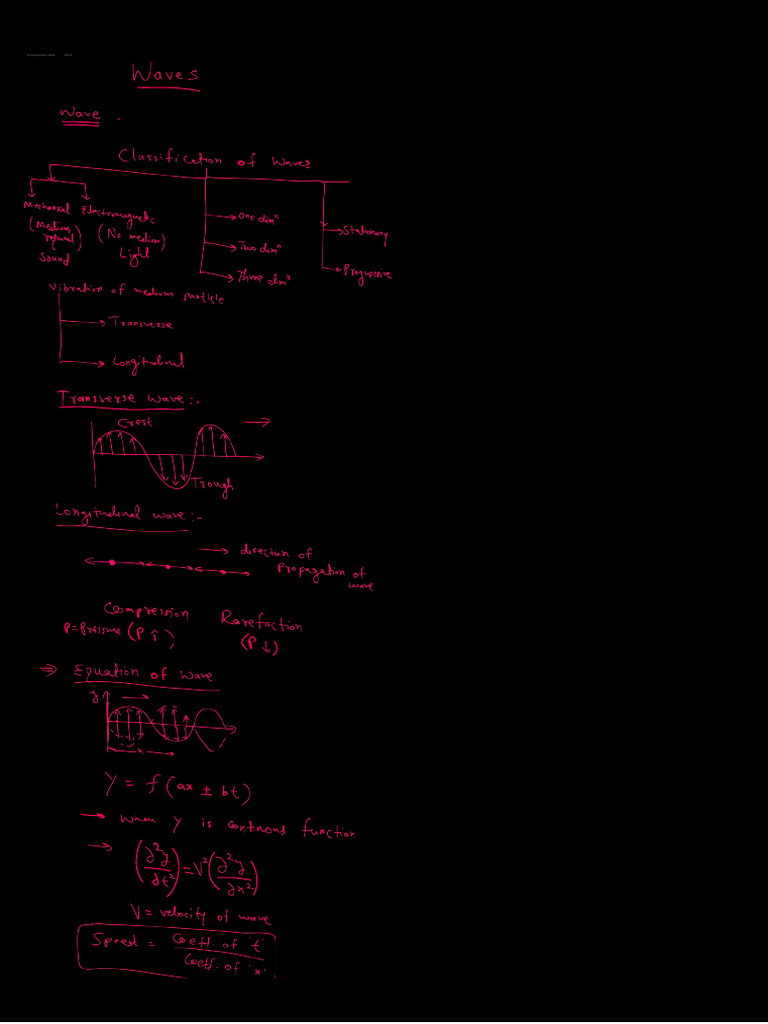 Waves
Wave .
Classification of Waves
Mechanical Electromagnetic
(Medium required) (No medium)
Sound Light
One dimⁿ
Two dimⁿ
Three dimⁿ
Stationary
Progressive
Vibration of medium particle
Transverse
Longitudinal
Transverse wave :-
Crest
Trough
Longitudinal wave :-
direction of
Propagation of
wave
Compression Rarefaction
P = Pressure (P ↑) (P ↓)
⇒ Equation of Wave
y
x
Y = f(ax ± bt)
→ When Y is continous function
→ (∂²y/∂t²) = V² (∂²y/∂x²)
V = velocity of wave
Speed = Coeff. of 't' / Coeff. of 'x'